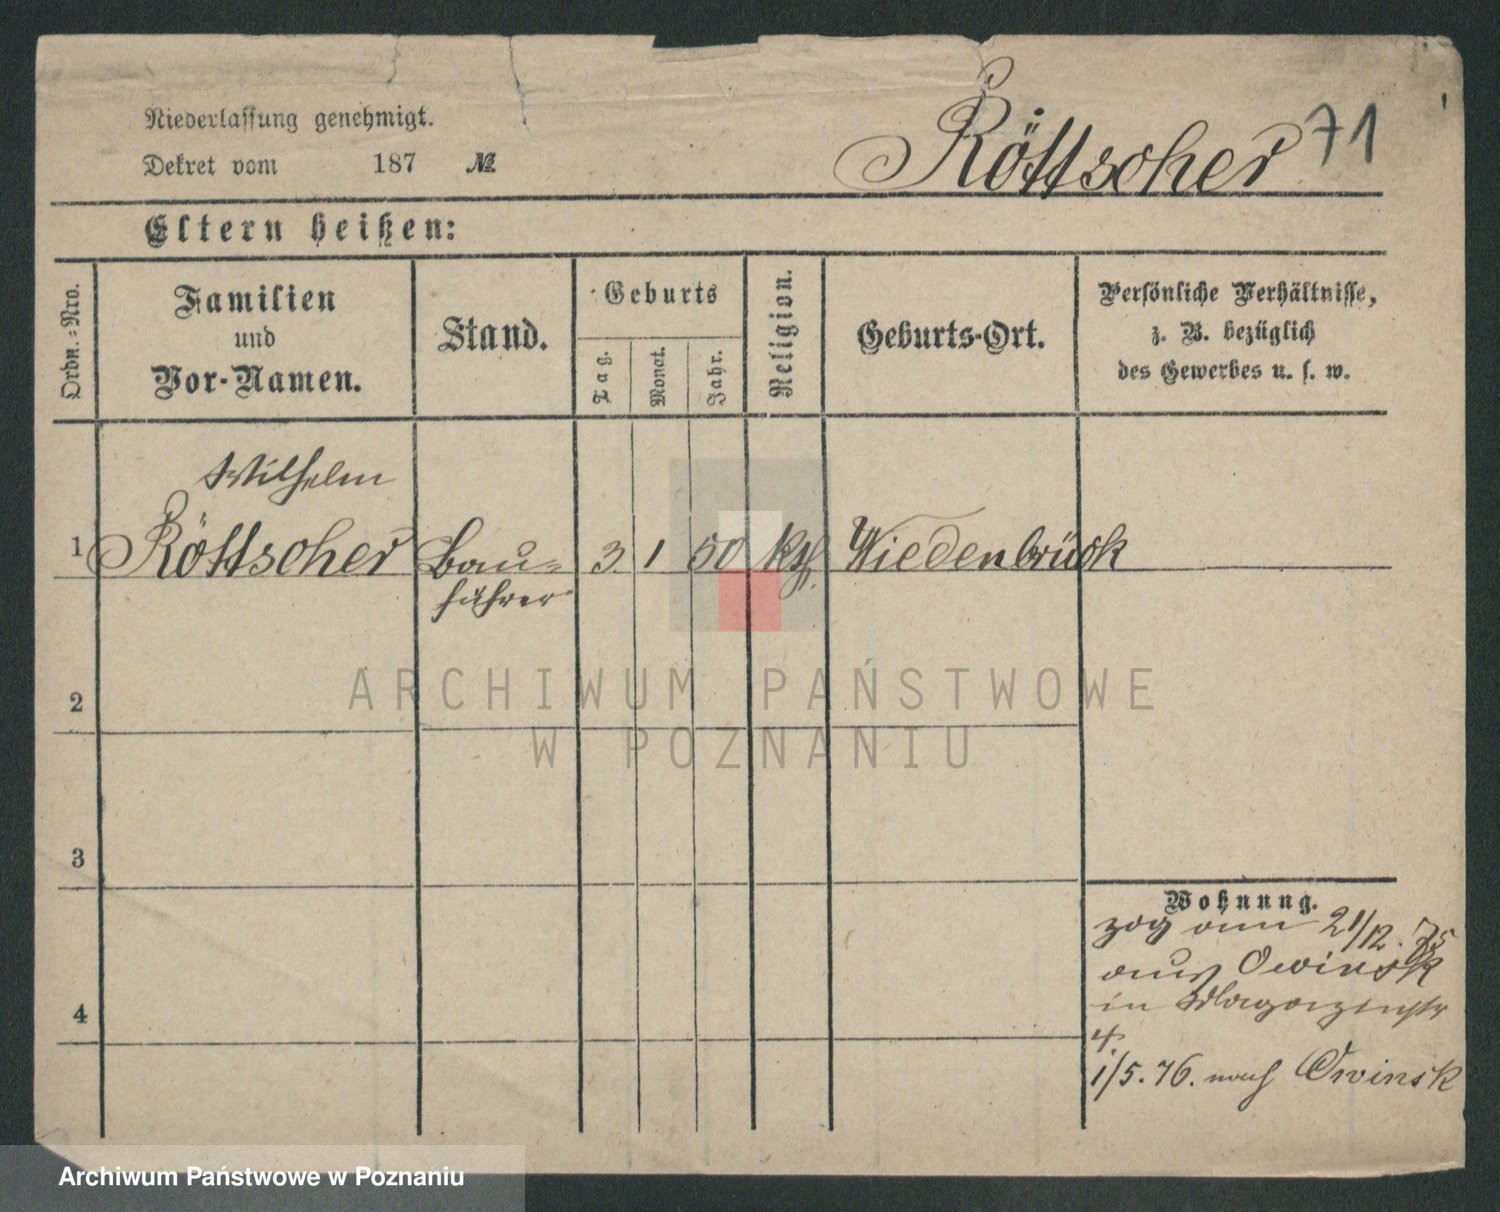 Niederlassung genehmigt.
Dekret vom 187 №
Röttscher 71
Eltern heißen:
Ordn.-Nro.
Familien
und
Vor-Namen.
Stand.
Geburts
Tag.
Monat.
Jahr.
Religion.
Geburts-Ort.
Persönliche Verhältnisse,
z. B. bezüglich
des Gewerbes u. s. w.
Wilhelm
1 Röttscher Bau= 3. 1 50 kth. Wiedenbrück
führer
2
3
4
Wohnung.
zog am 21/12. 75
aus Owinsk
in Magazinstr
4.
1/5. 76. nach Owinsk
ARCHIWUM PAŃSTWOWE
W POZNANIU
Archiwum Państwowe w Poznaniu